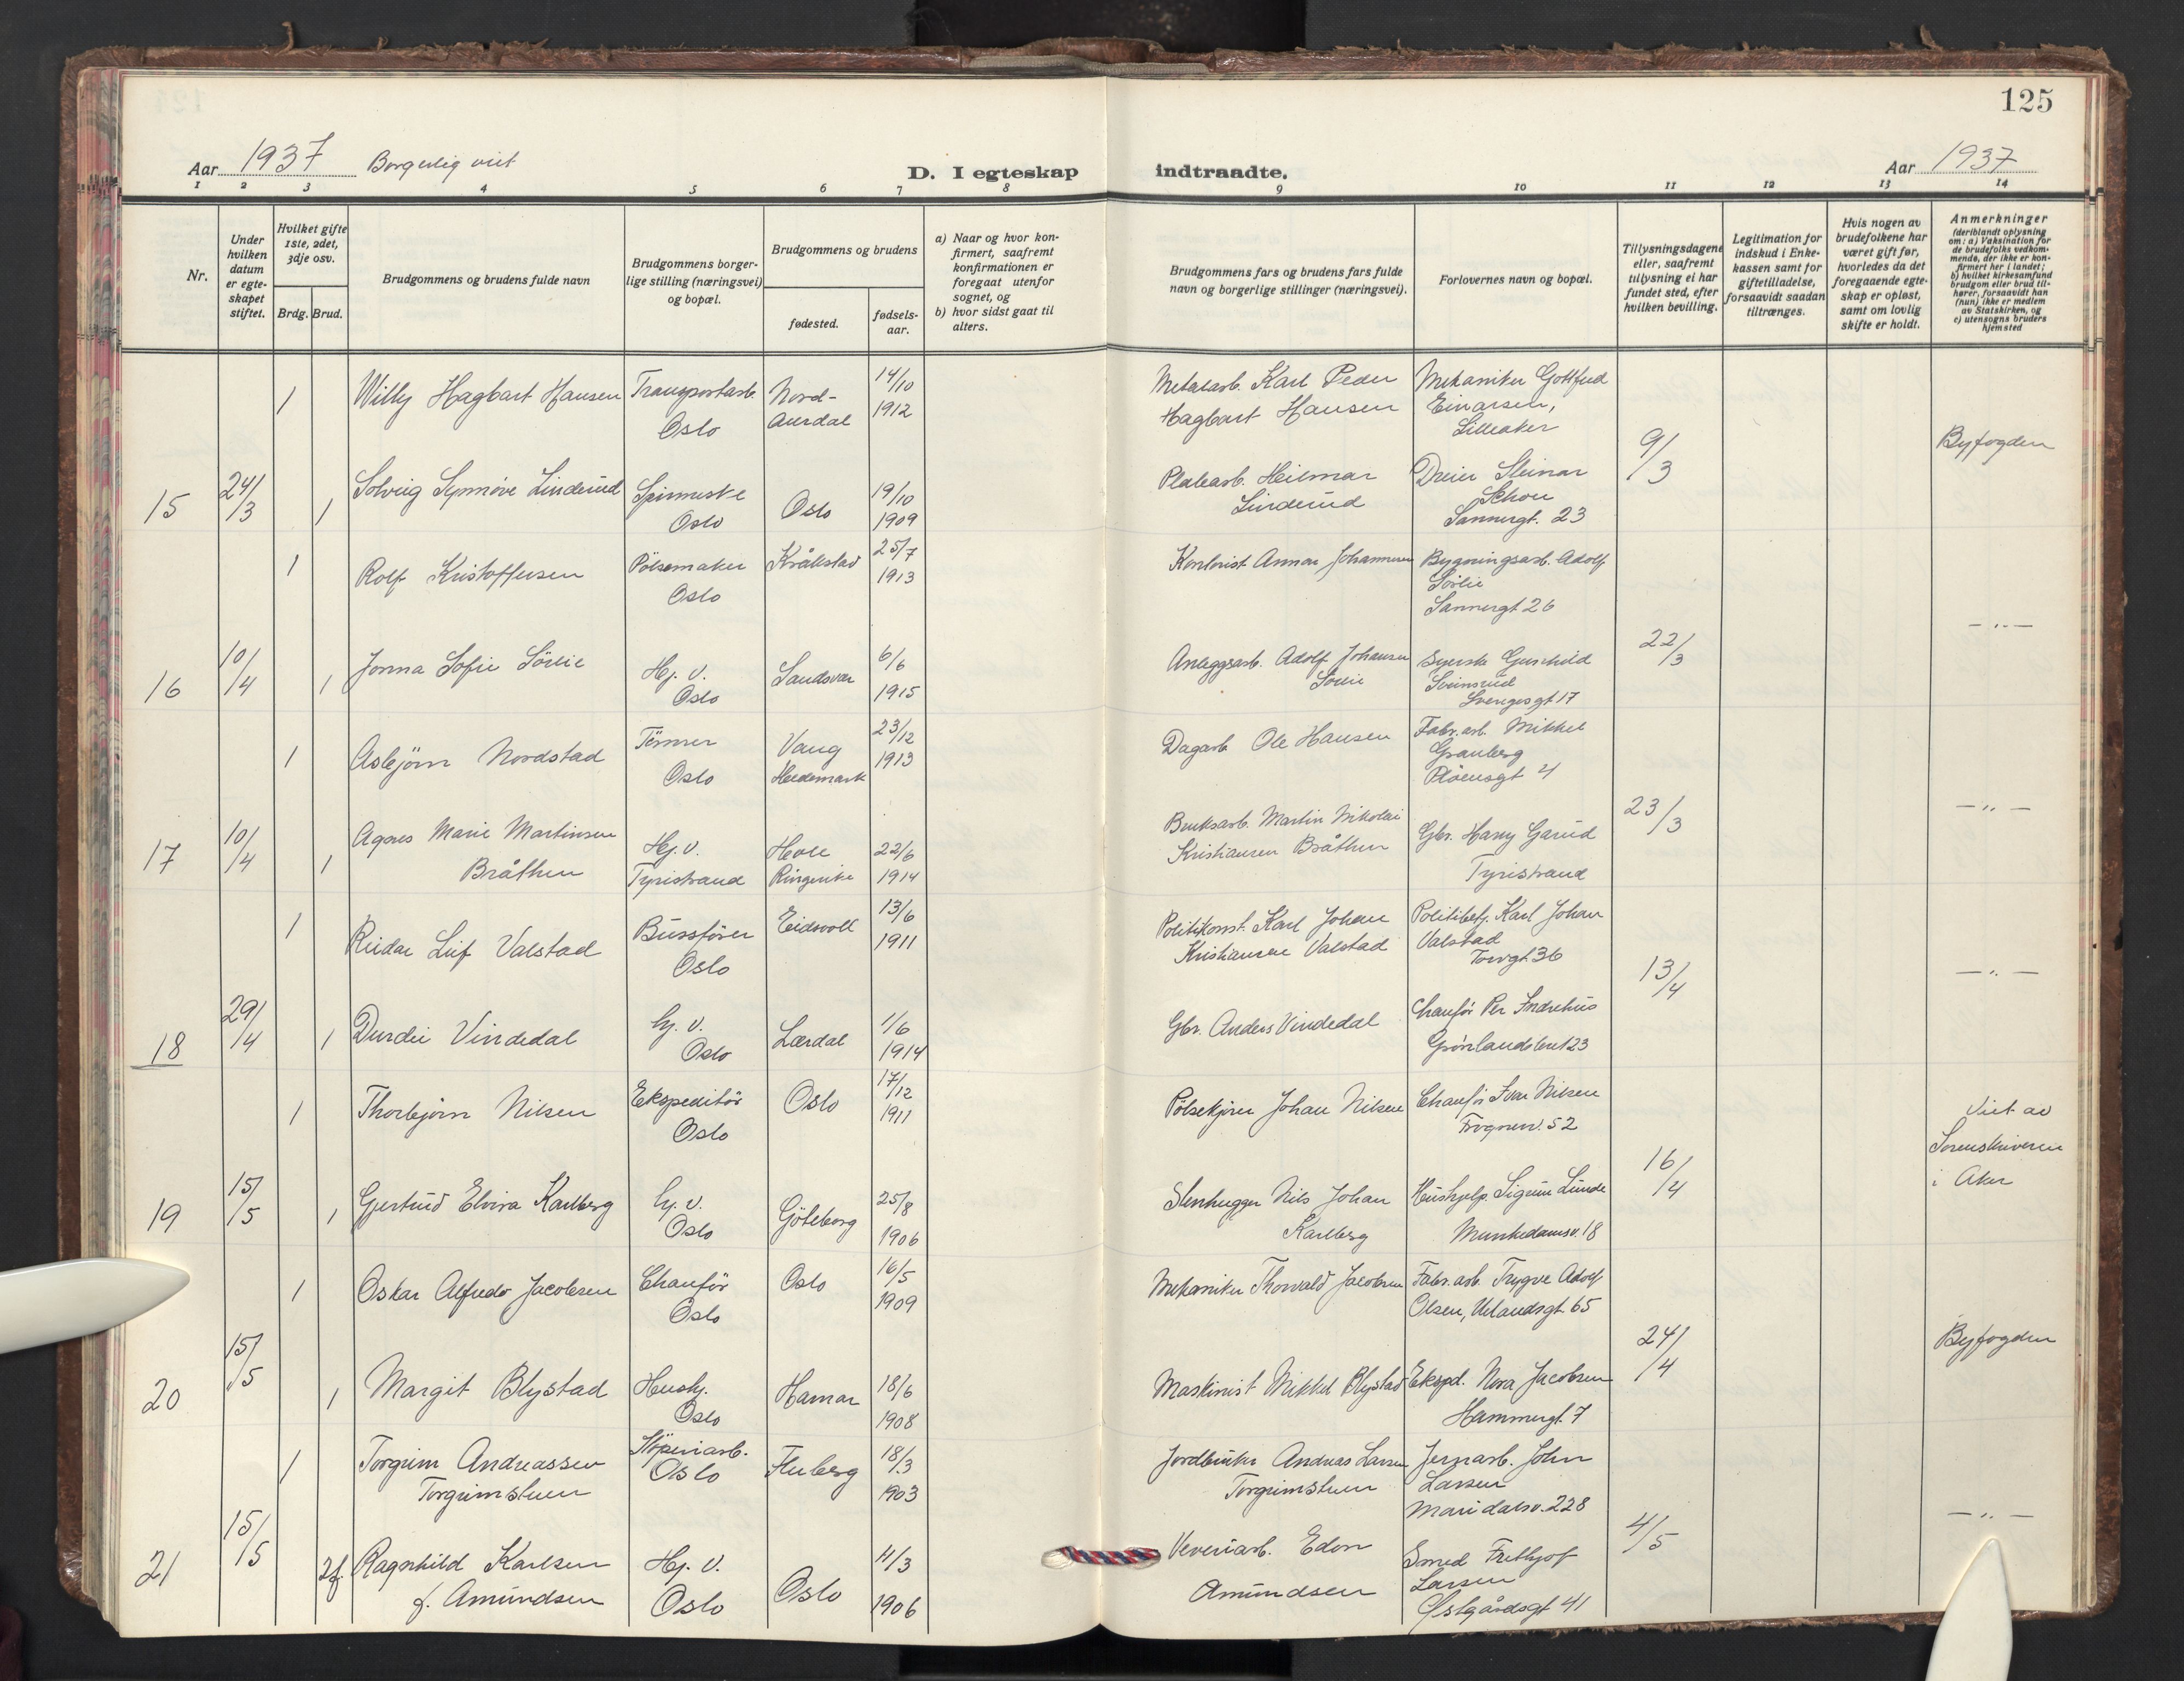 125
Aar 1937 Borgerlig viet
D. I egteskap indtraadte.
Aar 1937
1 2 3 4 5 6 7 8 9 10 11 12 13 14
Nr.
Under hvilken datum er egteskapet stiftet.
Hvilket gifte 1ste, 2det, 3dje osv.
Brdg. Brud.
Brudgommens og brudens fulde navn
Brudgommens borgerlige stilling (næringsvei) og bopæl.
Brudgommens og brudens
fødested.
fødselsaar.
a) Naar og hvor konfirmert, saafremt konfirmationen er foregaat utenfor sognet, og
b) hvor sidst gaat til alters.
Brudgommens fars og brudens fars fulde navn og borgerlige stillinger (næringsvei).
Forlovernes navn og bopæl.
Tillysningsdagene eller, saafremt tillysning ei har fundet sted, efter hvilken bevilling.
Legitimation for indskud i Enkekassen samt for giftetilladelse, forsaavidt saadan tiltrænges.
Hvis nogen av brudefolkene har været gift før, hvorledes da det foregaaende egteskap er opløst, samt om lovlig skifte er holdt.
Anmerkninger (deriblandt oplysning om: a) Vaksination for de brudefolks vedkommende, der ikke er konfirmert her i landet; b) hvilket kirkesamfund brudgom eller brud tilhører, forsaavidt han (hun) ikke er medlem av Statskirken, og c) utensogns bruders hjemsted
1 Willy Hagbart Hansen Transportarb. Oslo Nord-Aurdal 14/10 1912 Metalarb. Karl Peder Hagbart Hansen Mekaniker Gottfred Einarsen, Lilleaker
15 24/3 1 Solveig Synnöve Linderud Spinnerske Oslo Oslo 19/10 1909 Platearb. Heilmar Linderud Dreier Steinar Schou Sannergt. 23 9/3 Byfogden
1 Rolf Kristoffersen Pölsemaker Oslo Kråkstad 25/7 1913 Kontorist Annar Johannesen Bygningsarb. Adolf Sörlie Sannergt 26
16 10/4 1 Jonna Sofie Sörlie Hj. v. Oslo Sandsvær 6/6 1915 Anleggsarb. Adolf Johansen Sörlie Syerske Gunhild Sveinsrud Svenges gt 17 22/3 — " —
1 Asbjörn Nordstad Tömrer Oslo Vang Hedemark 23/12 1913 Dagarb Ole Hansen Fabr. arb. Mikkel Granberg Plöensgt 4
17 10/4 1 Agnes Marie Martinsen Bråthen Hj. v. Tyristrand Hole Ringerike 22/6 1914 Bruksarb. Martin Nikolai Kristiansen Bråthen Gbr. Harry Garud Tyristrand 23/3 — " —
1 Reidar Leif Valstad Bussförer Oslo Eidsvoll 13/6 1911 Politikonst. Karl Johan Kristiansen Valstad Politibetj. Karl Johan Valstad Torvgt. 36
18 29/4 1 Durdei Vindedal Hj. v. Oslo Lærdal 1/6 1914 Gbr. Anders Vindedal Chauför Per Indrehus Grönlandsleret 23 13/4 — " —
1 Thorbjörn Nilsen Ekspeditör Oslo Oslo 17/12 1911 Pölsekjörer Johan Nilsen Chauför Ivar Nilsen Frognerv. 52
19 15/5 1 Gjertrud Elvira Karlberg Hj. v. Oslo Göteborg 25/8 1906 Stenhugger Nils Johan Karlberg Hushjelp. Sigrun Lunde Munkedamsv. 18 16/4 Viet av Sorenskriveren i Aker
1 Oskar Alfredo Jacobsen Chauför Oslo Oslo 16/5 1909 Mekaniker Thorvald Jacobsen Fabr. arb. Trygve Adolf Olsen, Uelandsgt. 65
20 15/5 1 Margit Blystad Hushj. Oslo Hamar 18/6 1908 Maskinist Mikkel Blystad Ekspd. Nora Jacobsen Hammergt. 7 24/4 Byfogden
1 Torgrim Andreassen Torgrimstuen Stöperiarb. Oslo Fluberg 18/3 1903 Jordbruker Andreas Larsen Torgrimstuen Jernarb. John Larsen Maridalsv. 228
21 15/5 2 f. Ragnhild Karlsen f. Amundsen Hj. v. Oslo Oslo 11/3 1906 Veveriarb. Edon Amundsen Smed Frithjof Larsen Östgårdsgt 41 4/5 — " —